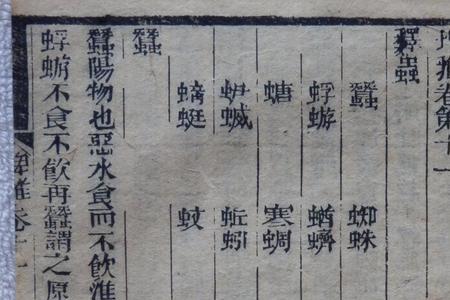 埤雅卷第十一
釋蟲
蠶 蜘蛛
蜉蝣 蝤蠐
螗 寒蜩
蛜蝛 蚯蚓
蜓 蚊
蠶
蠶陽物也惡水食而不飲淮
蜉蝣不食不飲再蠶謂之原
埤雅卷十一